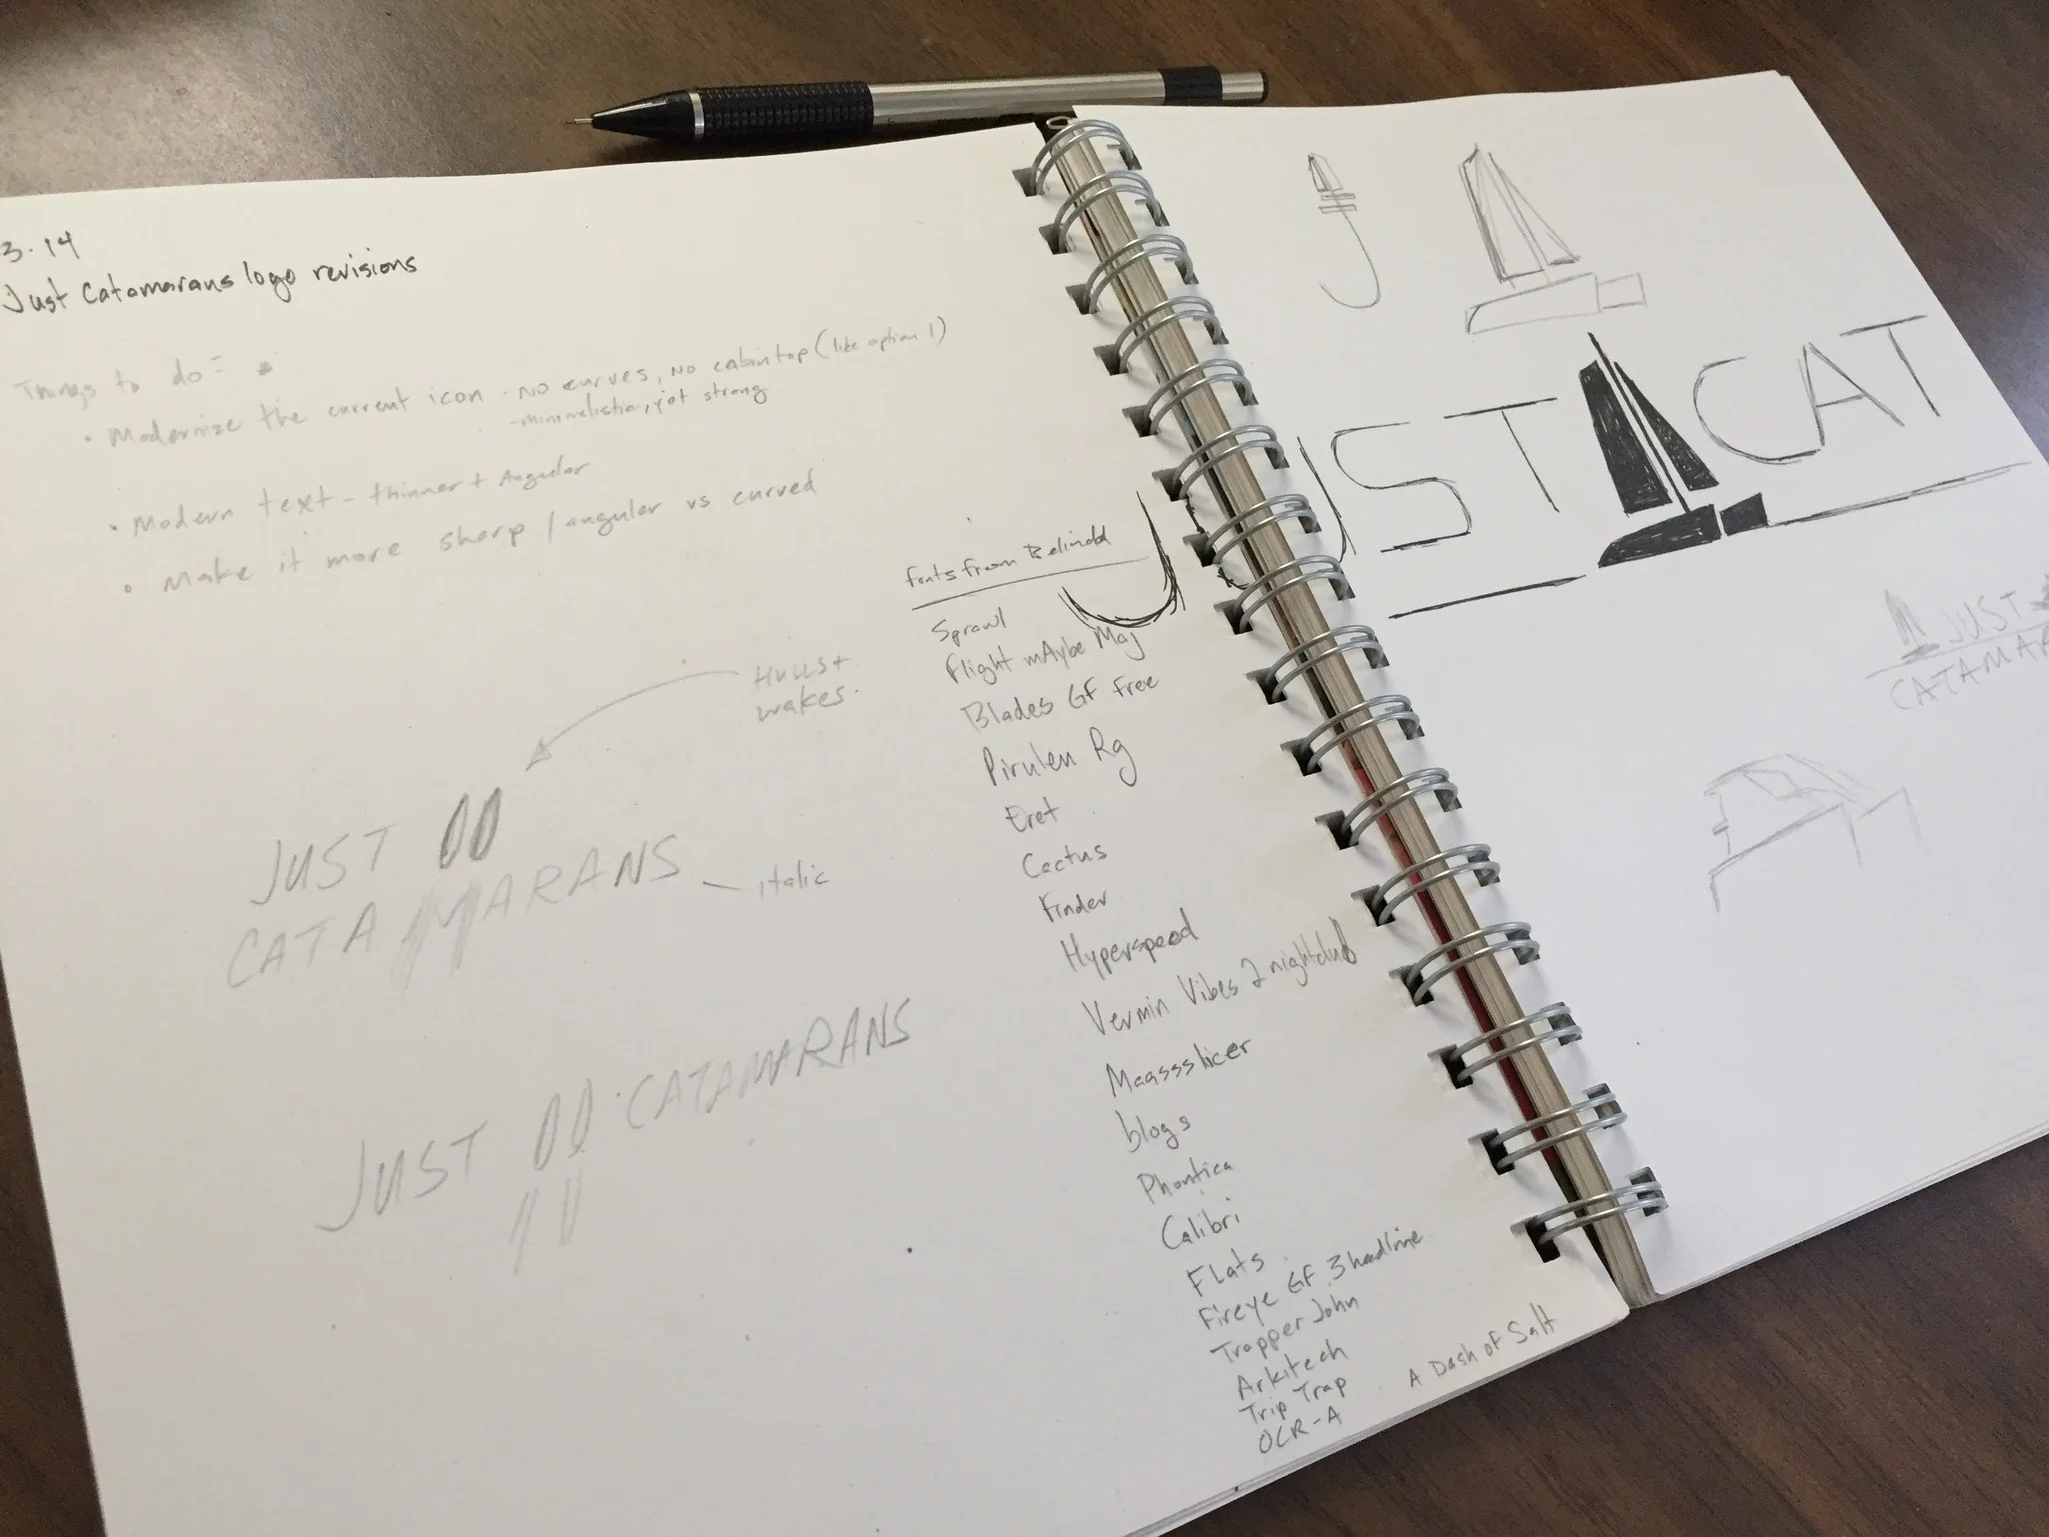 3.14
Just Catamarans logo revisions
Things to do:
• Modernize the current icon - NO curves, NO cabin top (like option 1)
- minimalistic, yet strong
• Modern text - thinner + Angular
• Make it more sharp / angular vs curved
Hulls +
wakes
JUST
CATAMARANS
Italic
JUST CATAMARANS
fonts from Belinda
Sprawl
flight mAybe Maj
Blades GF Free
Pirulen Rg
Eret
Cactus
Finder
Hyperspeed
Vermin Vibes 2 nightclub
Maassslicer
blogs
Phontica
Calibri
Flats
Fireye GF 3 headline
Trapper John
Arkitech
Trip Trap
OCR-A
A Dash of Salt
J
JUST CAT
JUST
CATAMAR